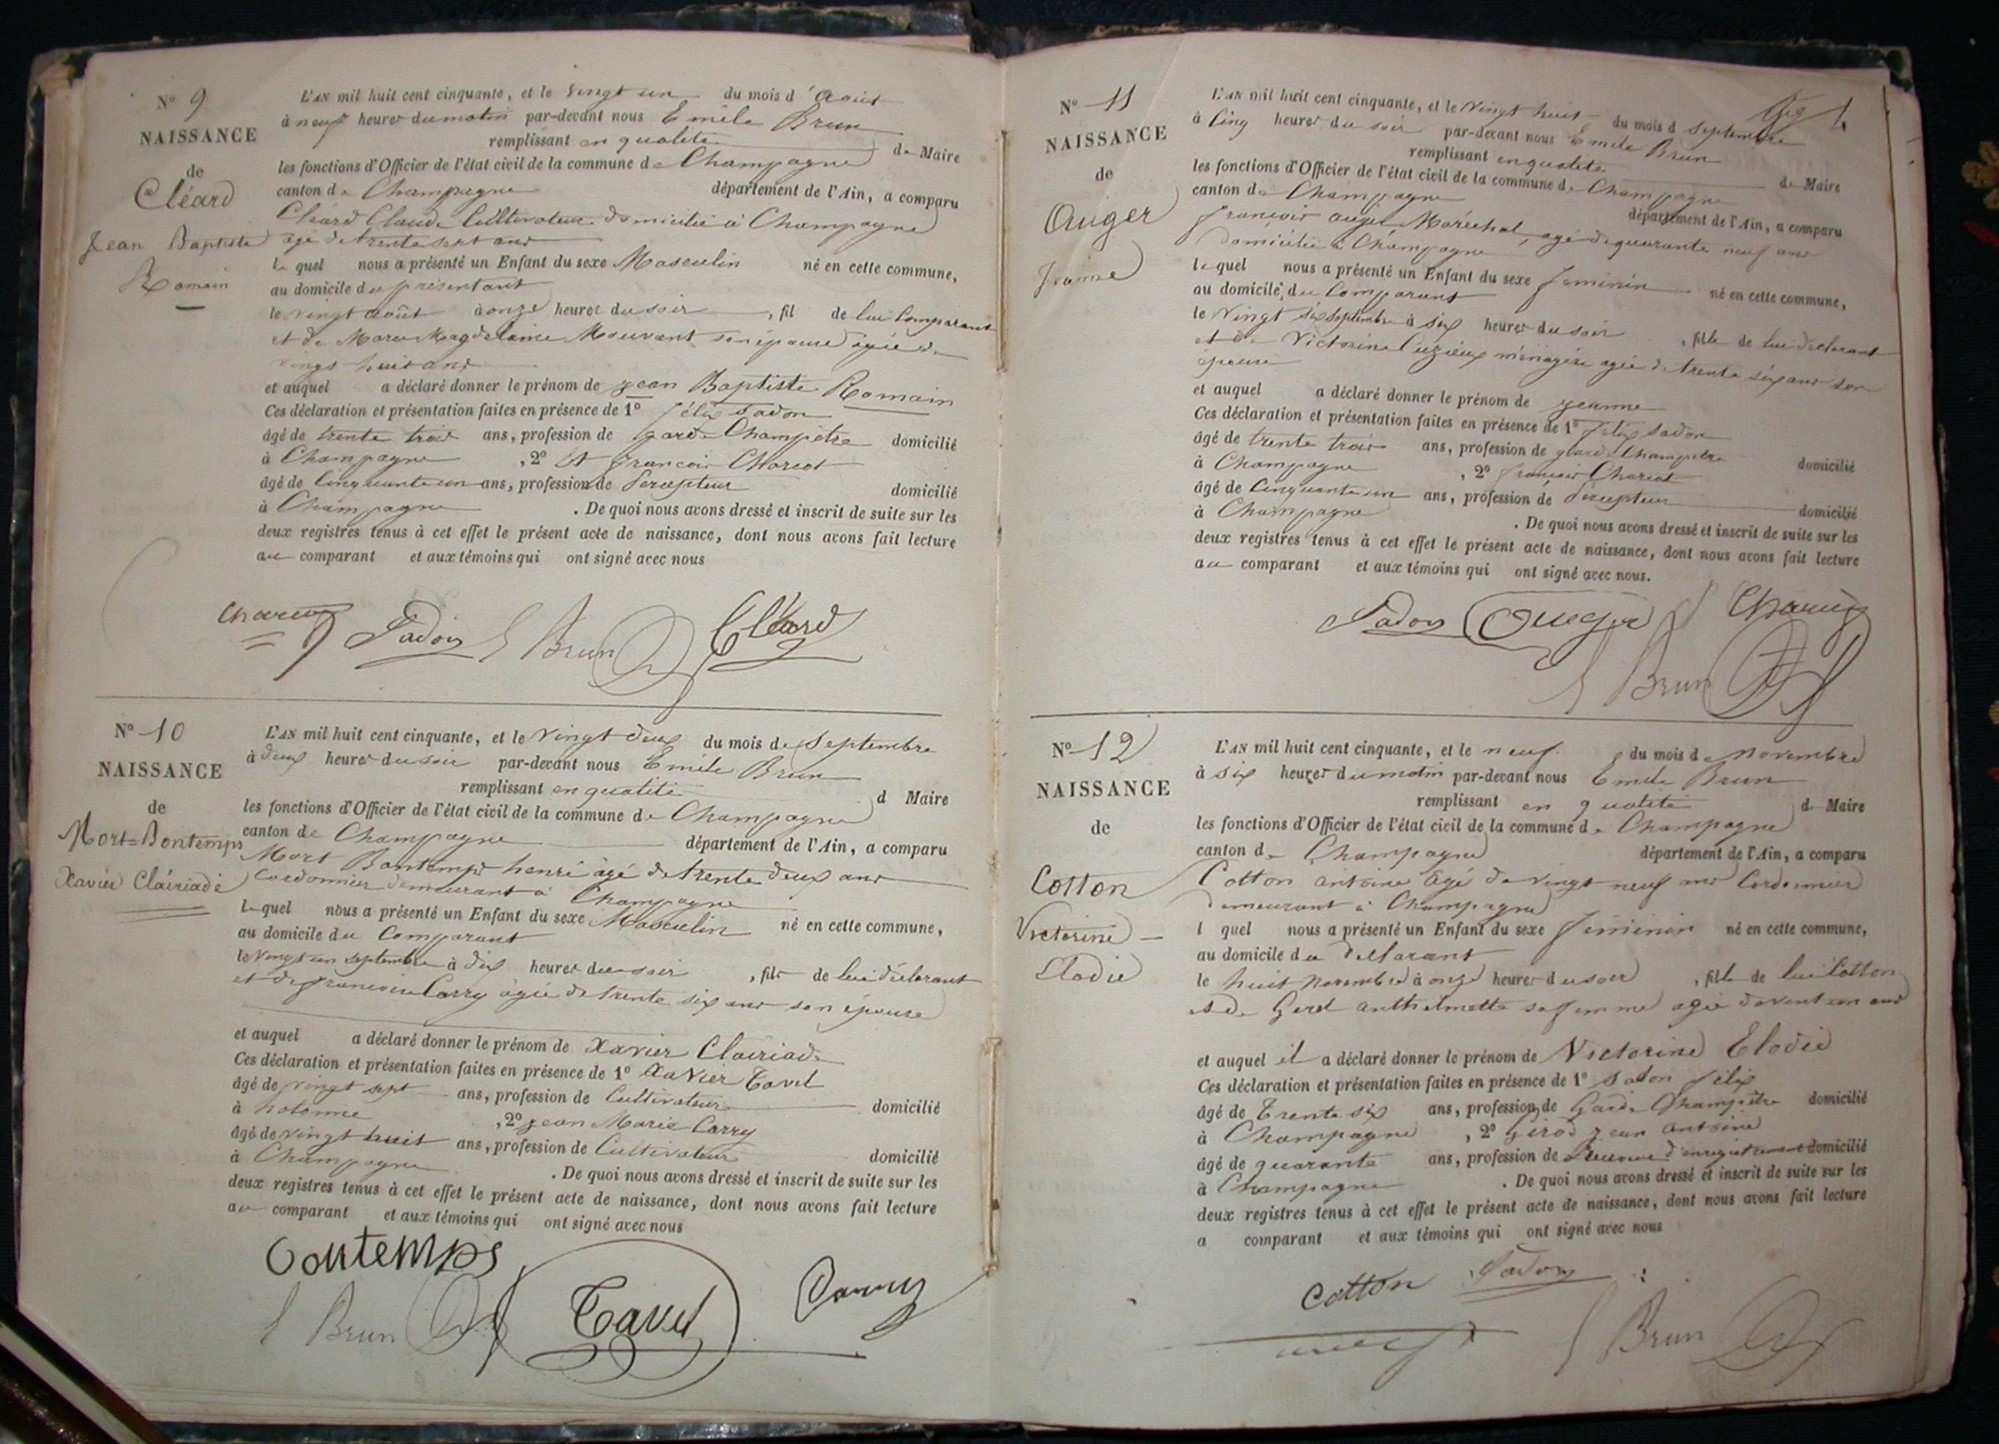 N° 9
NAISSANCE
de
Cléard
Jean Baptiste
Romain
L'AN mil huit cent cinquante, et le vingt un du mois d'août
à neuf heures du matin par-devant nous Emile Brun
remplissant en qualité de Maire
les fonctions d'Officier de l'état civil de la commune de Champagne
canton de Champagne département de l'Ain, a comparu
Cléard Claude Cultivateur domicilié à Champagne
agé de trente sept ans
lequel nous a présenté un Enfant du sexe Masculin né en cette commune,
au domicile du présentant
le vingt août à onze heures du soir, fil de lui Comparant
et de Marie Magdelaine Mouvant son épouse agée de
vingt huit ans
et auquel a déclaré donner le prénom de jean Baptiste Romain
Ces déclaration et présentation faites en présence de 1° félix Sadon
âgé de trente trois ans, profession de garde Champêtre domicilié
à Champagne, 2° françois Charcot
âgé de Cinquante un ans, profession de Percepteur domicilié
à Champagne. De quoi nous avons dressé et inscrit de suite sur les
deux registres tenus à cet effet le présent acte de naissance, dont nous avons fait lecture
au comparant et aux témoins qui ont signé avec nous
Sadon E Brun Cléard
N° 10
NAISSANCE
de
Mort=Bontemps
Xavier Clairiade
L'AN mil huit cent cinquante, et le vingt deux du mois de Septembre
à deux heures du soir par-devant nous Emile Brun
remplissant en qualité d Maire
les fonctions d'Officier de l'état civil de la commune de Champagne
canton de Champagne département de l'Ain, a comparu
Mort Bontemps henri âgé de trente deux ans
Cordonnier demeurant à Champagne
lequel nous a présenté un Enfant du sexe Masculin né en cette commune,
au domicile du Comparant
le vingt un septembre à dix heures du soir, fils de lui déclarant
et de francoise Carry âgée de trente six ans son épouse
et auquel a déclaré donner le prénom de Xavier Clairiade
Ces déclaration et présentation faites en présence de 1° Xavier Tavel
âgé de vingt sept ans, profession de Cultivateur domicilié
à hotonne, 2° jean Marie Carry
âgé de vingt huit ans, profession de Cultivateur domicilié
à Champagne. De quoi nous avons dressé et inscrit de suite sur les
deux registres tenus à cet effet le présent acte de naissance, dont nous avons fait lecture
au comparant et aux témoins qui ont signé avec nous
Bontemps
E Brun Tavel Carry
N° 11
NAISSANCE
de
Auger
Jeanne
L'AN mil huit cent cinquante, et le vingt huit du mois d Septembre
à Cinq heures du soir par-devant nous Emile Brun
remplissant en qualité de Maire
les fonctions d'Officier de l'état civil de la commune de Champagne
canton de Champagne département de l'Ain, a comparu
françois auger Maréchal, agé de quarante neuf ans
domicilié à Champagne
lequel nous a présenté un Enfant du sexe feminin né en cette commune,
au domicile du Comparant
le Vingt six septembre à six heures du soir, fille de lui declarant
et de Victorine Cuzieux ménagère agée de trente six ans son
épouse
et auquel a déclaré donner le prénom de jeanne
Ces déclaration et présentation faites en présence de 1° félix Sadon
âgé de trente trois ans, profession de garde Champêtre domicilié
à Champagne, 2° françois Charcot
âgé de Cinquante un ans, profession de percepteur domicilié
à Champagne. De quoi nous avons dressé et inscrit de suite sur les
deux registres tenus à cet effet le présent acte de naissance, dont nous avons fait lecture
au comparant et aux témoins qui ont signé avec nous.
Sadon Auger
E Brun
N° 12
NAISSANCE
de
Cotton
Victorine
Elodie
L'AN mil huit cent cinquante, et le neuf du mois de novembre
à six heures du matin par-devant nous Emile Brun
remplissant en qualité de Maire
les fonctions d'Officier de l'état civil de la commune de Champagne
canton de Champagne département de l'Ain, a comparu
Cotton antoine agé de vingt neuf ans Cordonnier
demeurant à Champagne
l quel nous a présenté un Enfant du sexe féminin né en cette commune,
au domicile du déclarant
le huit novembre à onze heures du soir, fille de lui Cotton
et de anthelmette sa femme agée de vent un ans
et auquel il a déclaré donner le prénom de Victorine Elodie
Ces déclaration et présentation faites en présence de 1° Sadon félix
âgé de Trente six ans, profession de Garde Champêtre domicilié
à Champagne, 2° Girod jean antoine
âgé de quarante ans, profession de d'enregistrement domicilié
à Champagne. De quoi nous avons dressé et inscrit de suite sur les
deux registres tenus à cet effet le présent acte de naissance, dont nous avons fait lecture
a comparant et aux témoins qui ont signé avec nous
Cotton Sadon
E Brun